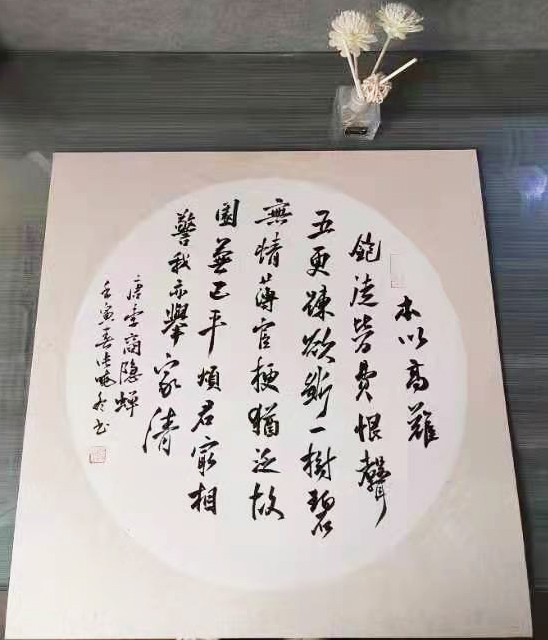 本以高難
飽徒勞費恨聲
五更疎欲斷一樹碧
無情薄宦梗猶泛故
園蕪已平煩君最相
警我亦舉家清
唐李商隱蝉
壬寅春 書